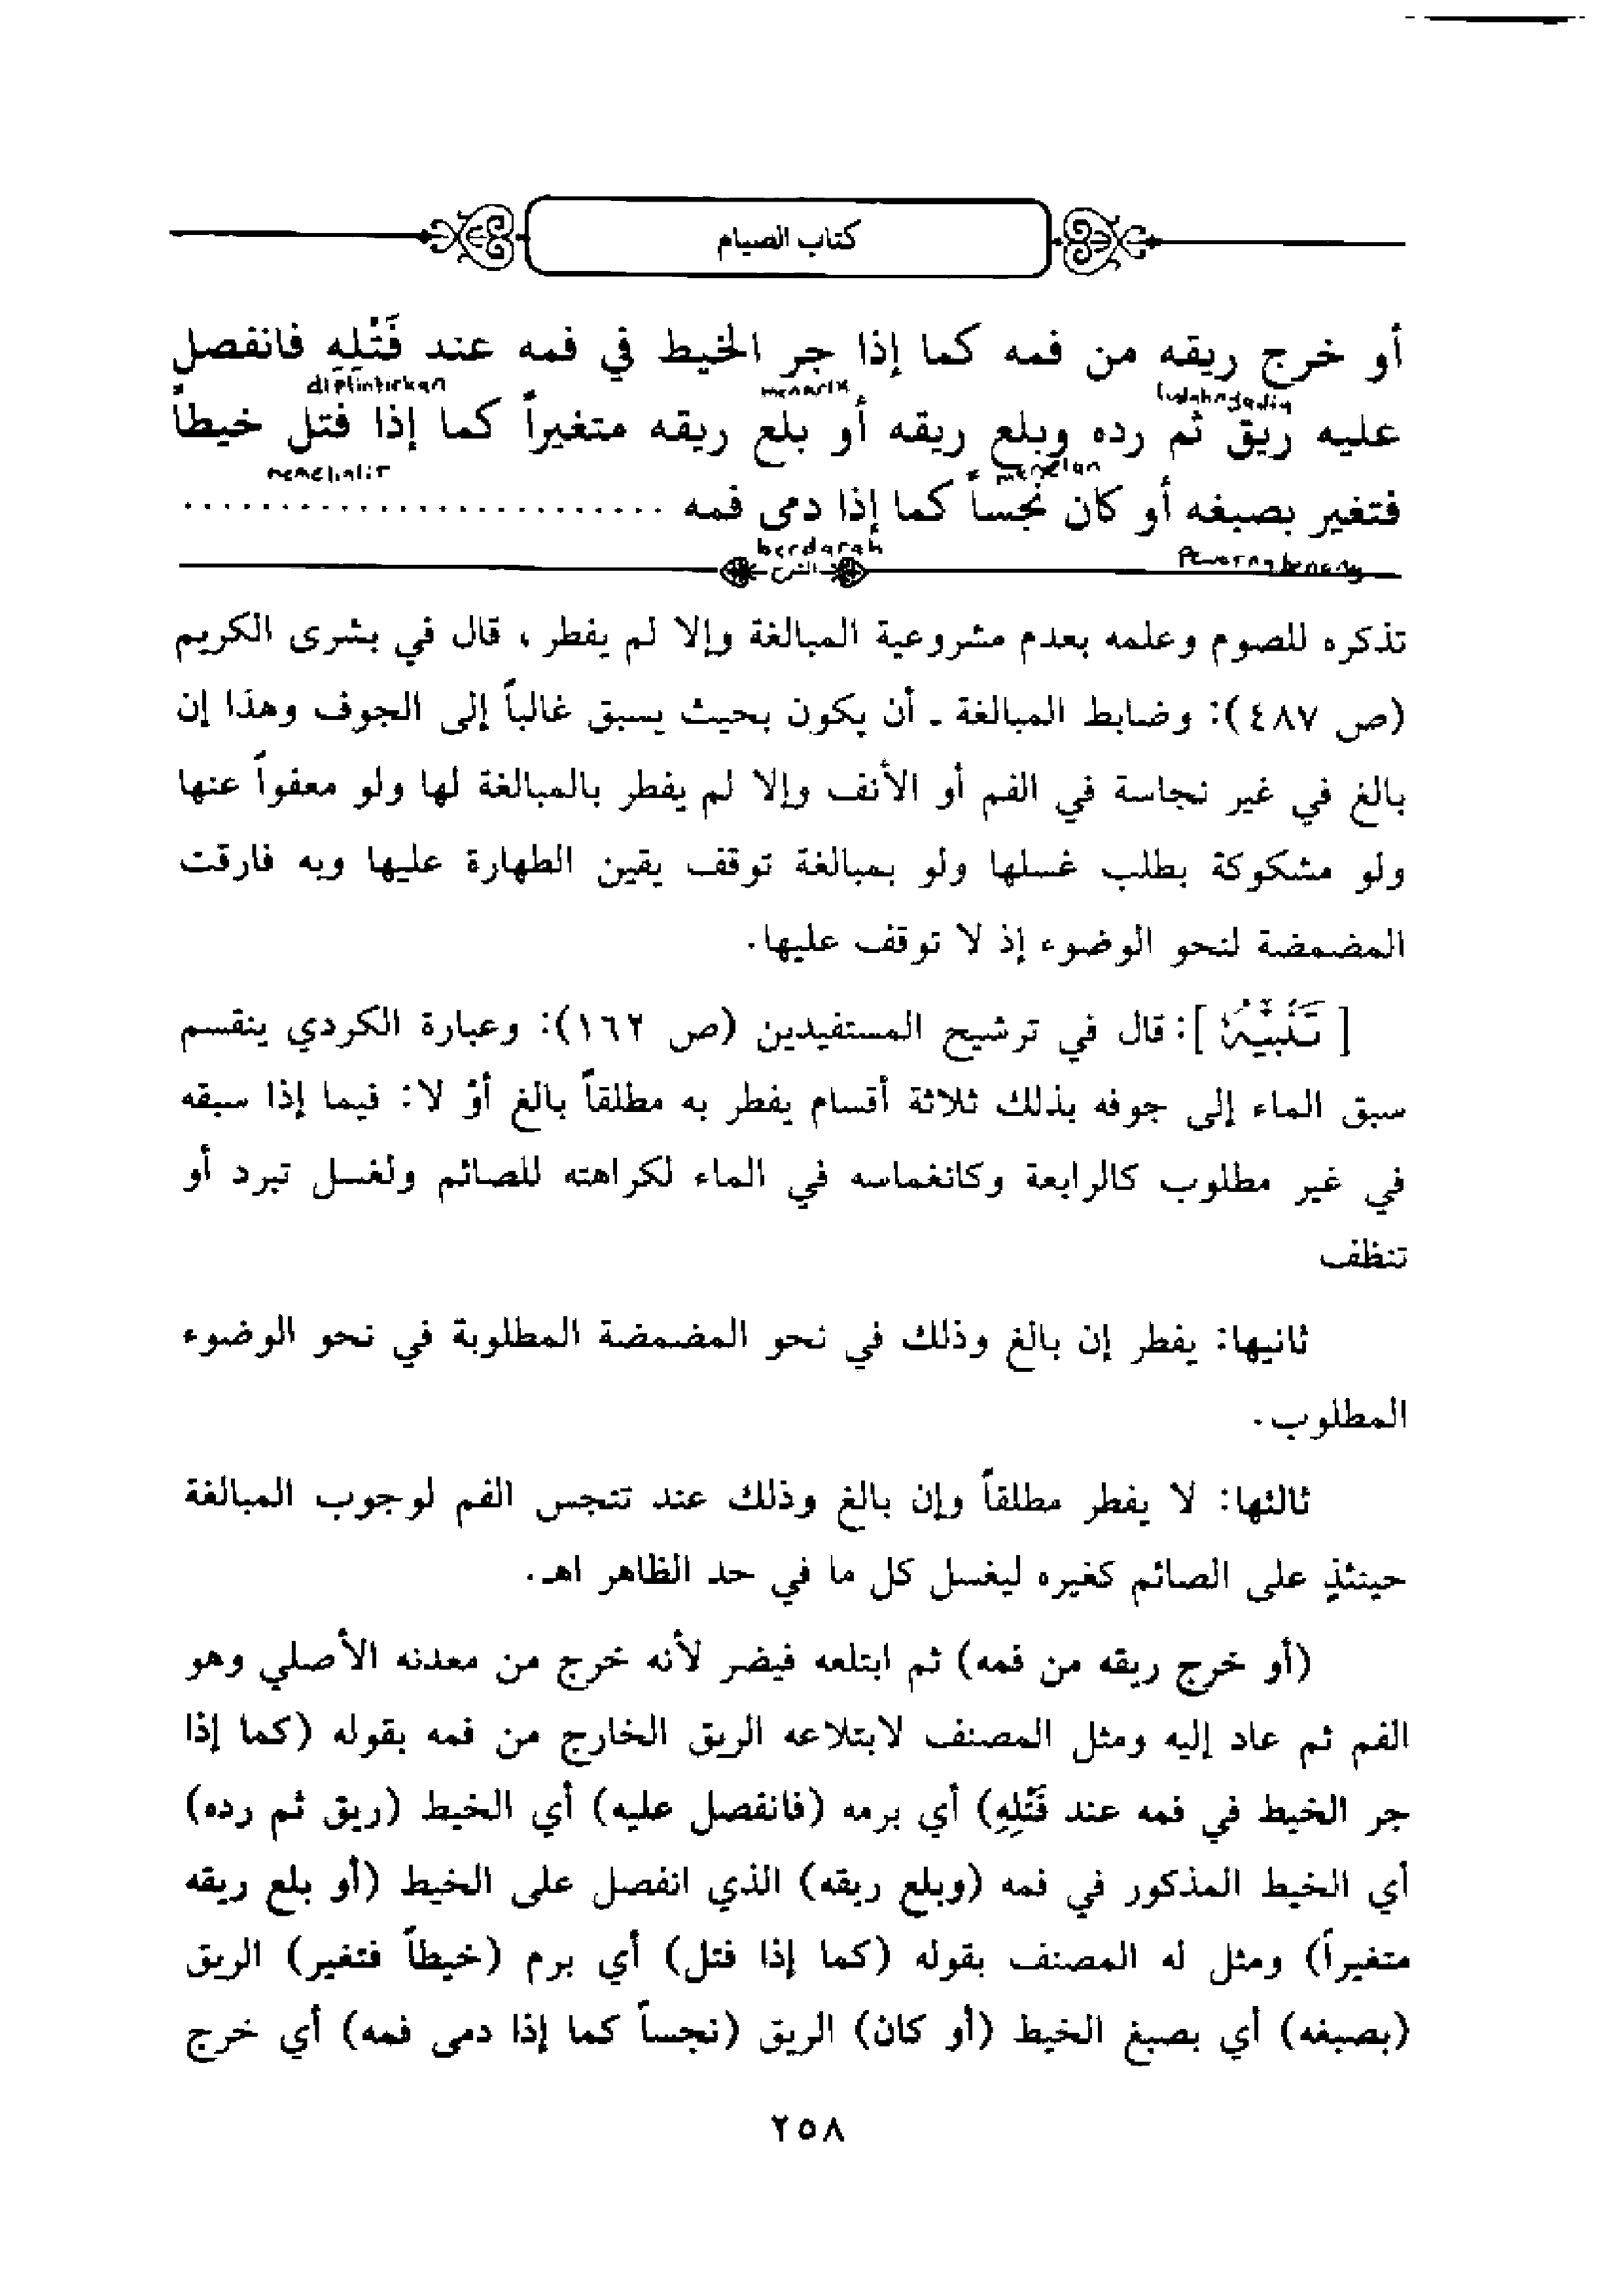 كتاب الصيام
أو خرج ريقه من فمه كما إذا جر الخيط في فمه عند فَتْلِهِ فانفصل
diplintirkan menarik ludahnya dia
عليه ريق ثم رده وبلع ريقه أو بلع ريقه متغيراً كما إذا فتل خيطاً
memelintir menelan
فتغير بصبغه أو كان نجساً كما إذا دمى فمه ........................
berdarah pewarna benang
الشرح
تذكره للصوم وعلمه بعدم مشروعية المبالغة وإلا لم يفطر، قال في بشرى الكريم
(ص ٤٨٧): وضابط المبالغة - أن يكون بحيث يسبق غالباً إلى الجوف وهذا إن
بالغ في غير نجاسة في الفم أو الأنف وإلا لم يفطر بالمبالغة لها ولو معفواً عنها
ولو مشكوكة بطلب غسلها ولو بمبالغة توقف يقين الطهارة عليها وبه فارقت
المضمضة لنحو الوضوء إذ لا توقف عليها.
[تَنْبِيْهٌ]: قال في ترشيح المستفيدين (ص ١٦٢): وعبارة الكردي ينقسم
سبق الماء إلى جوفه بذلك ثلاثة أقسام يفطر به مطلقاً بالغ أوْ لا: فيما إذا سبقه
في غير مطلوب كالرابعة وكانغماسه في الماء لكراهته للصائم ولغسل تبرد أو
تنظف
ثانيها: يفطر إن بالغ وذلك في نحو المضمضة المطلوبة في نحو الوضوء
المطلوب.
ثالثها: لا يفطر مطلقاً وإن بالغ وذلك عند تنجس الفم لوجوب المبالغة
حينئذٍ على الصائم كغيره ليغسل كل ما في حد الظاهر اهـ.
(أو خرج ريقه من فمه) ثم ابتلعه فيضر لأنه خرج من معدنه الأصلي وهو
الفم ثم عاد إليه ومثل المصنف لابتلاعه الريق الخارج من فمه بقوله (كما إذا
جر الخيط في فمه عند فَتْلِهِ) أي برمه (فانفصل عليه) أي الخيط (ريق ثم رده)
أي الخيط المذكور في فمه (وبلع ريقه) الذي انفصل على الخيط (أو بلع ريقه
متغيراً) ومثل له المصنف بقوله (كما إذا فتل) أي برم (خيطاً فتغير) الريق
(بصبغه) أي بصبغ الخيط (أو كان) الريق (نجساً كما إذا دمى فمه) أي خرج
٢٥٨